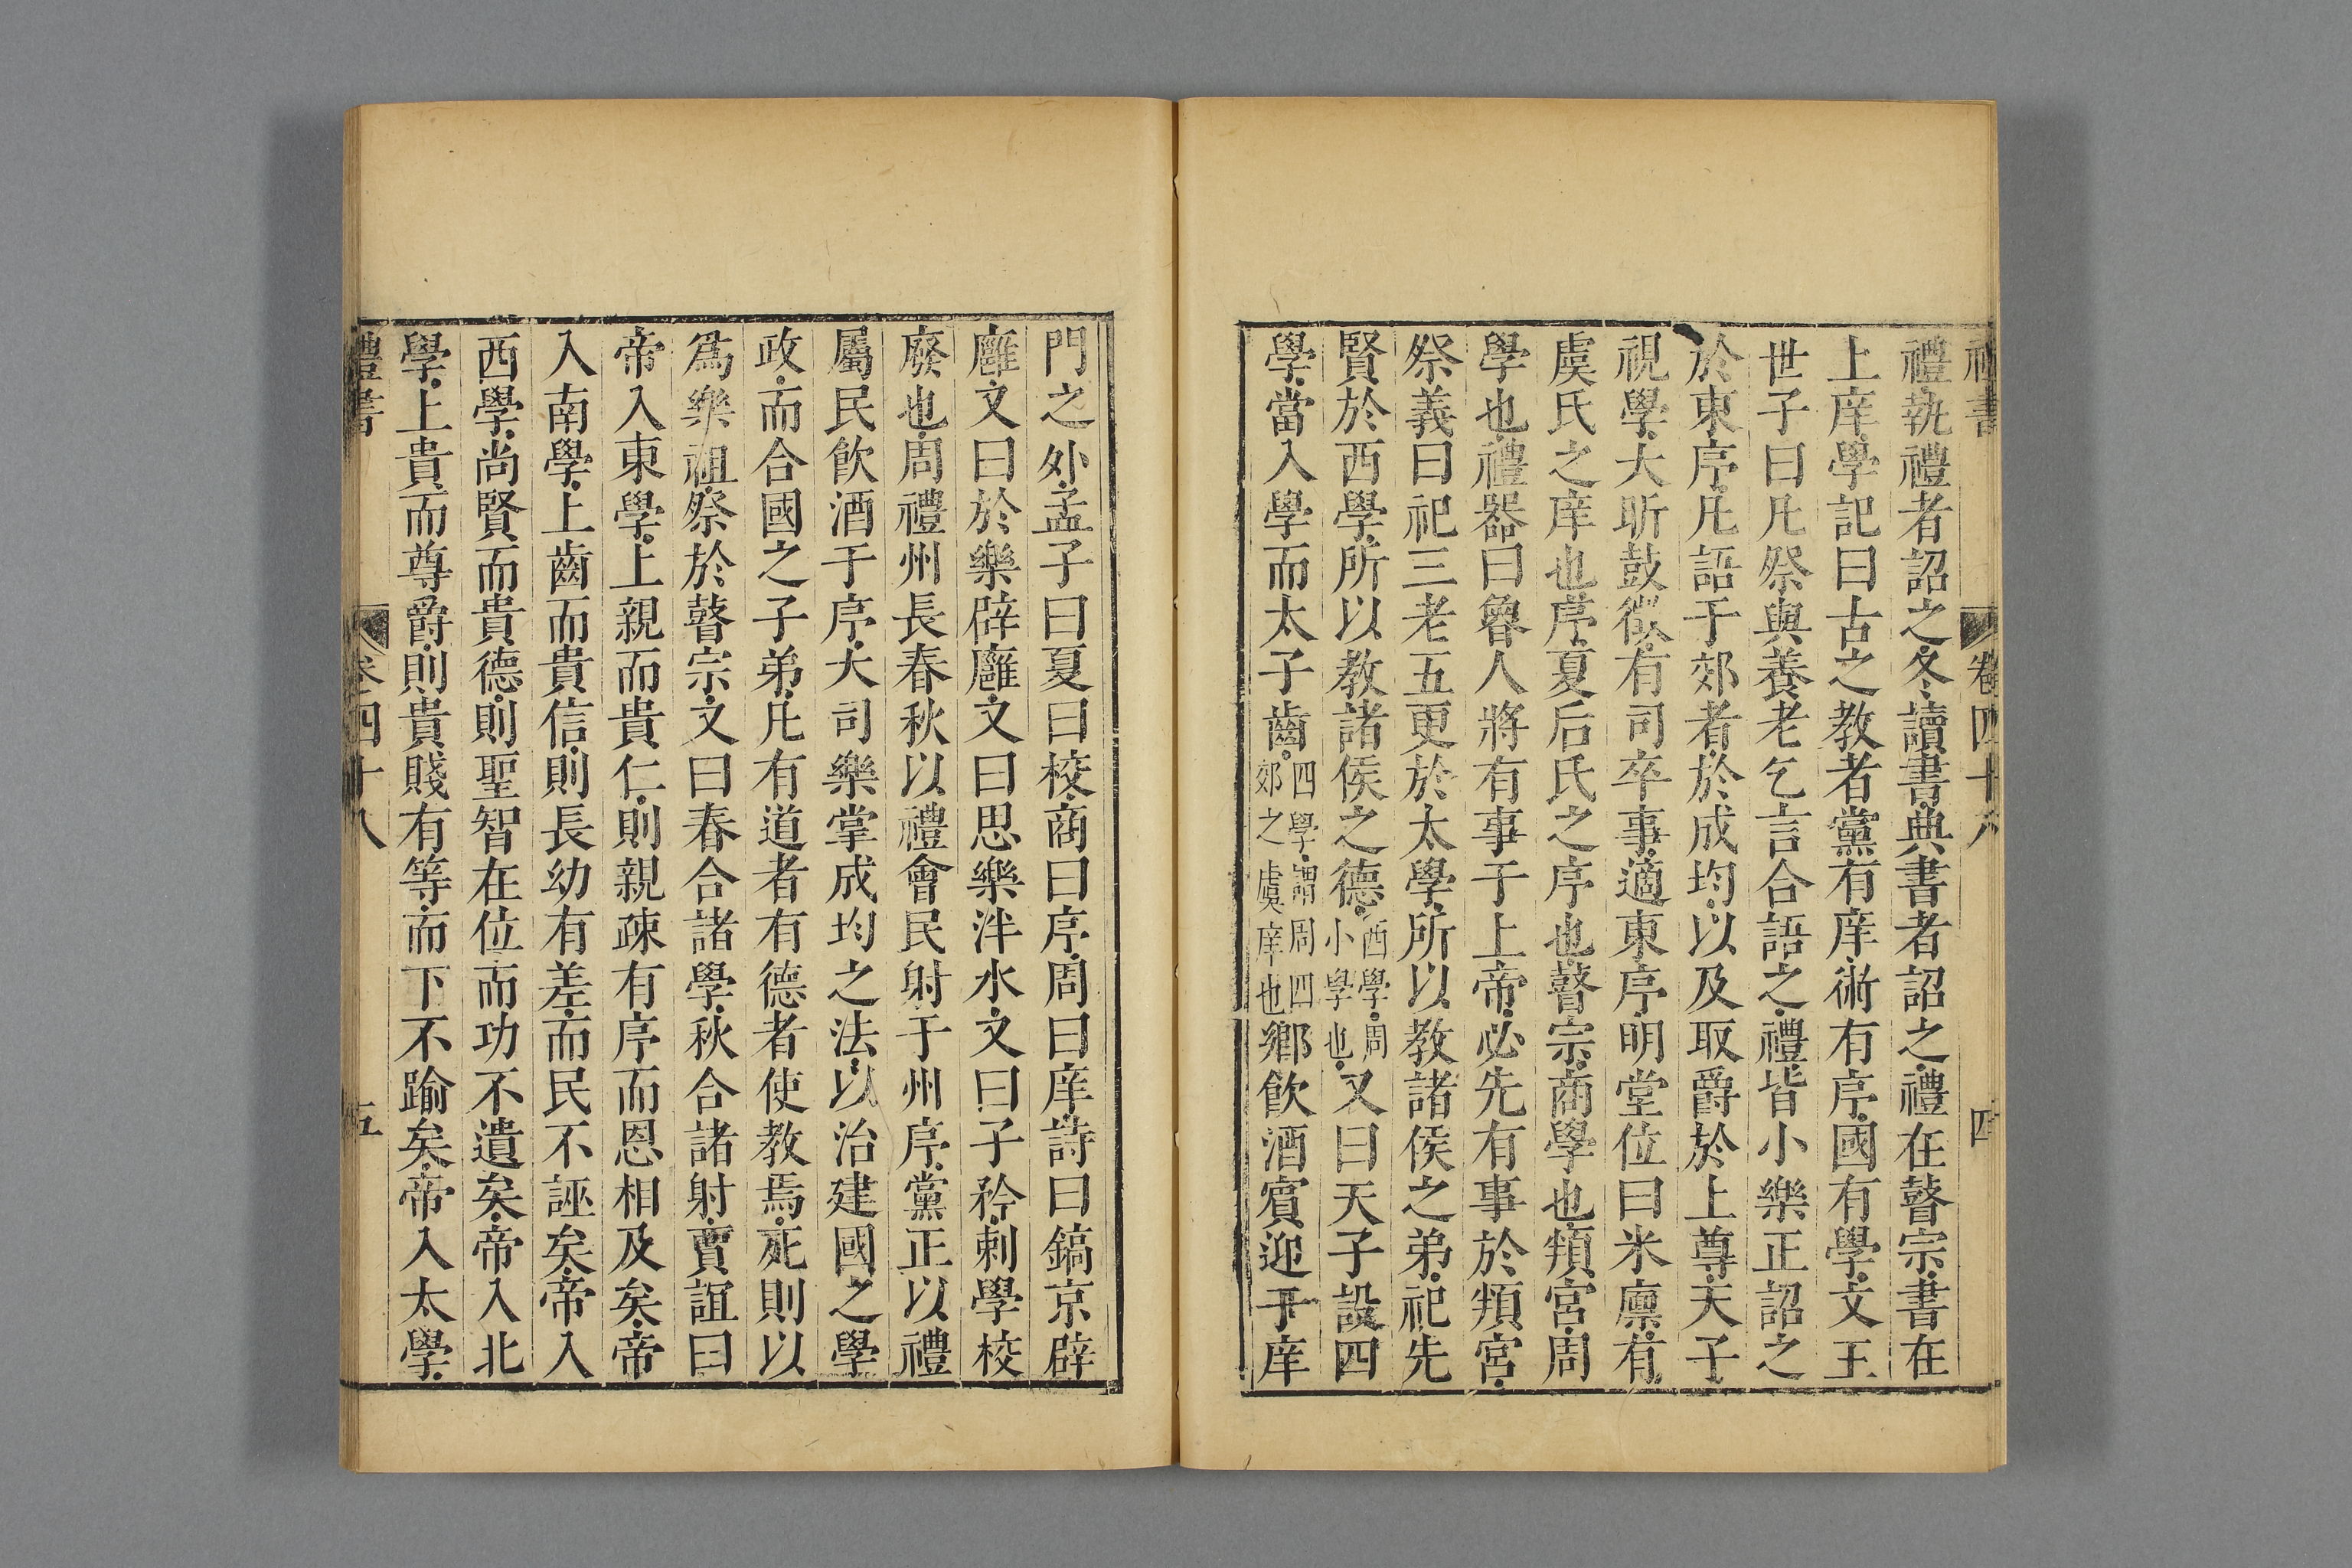 禮書 卷四十八 四
禮執禮者詔之冬讀書典書者詔之禮在瞽宗書在
上庠學記曰古之教者黨有庠術有序國有學文王
世子曰凡祭與養老乞言合語之禮皆小樂正詔之
於東序凡語于郊者於成均以及取爵於上尊天子
視學大昕鼓徵有司卒事適東序明堂位曰米廪有
虞氏之庠也序夏后氏之序也瞽宗商學也頖宮周
學也禮器曰魯人將有事于上帝必先有事於頖宮
祭義曰祀三老五更於太學所以教諸侯之弟祀先
賢於西學所以教諸侯之德西學周小學也又曰天子設四
學當入學而太子齒四學謂周四郊之虞庠也鄉飲酒賓迎于庠
門之外孟子曰夏曰校商曰序周曰庠詩曰鎬京辟
廱文曰於樂辟廱文曰思樂泮水文曰子衿刺學校
廢也周禮州長春秋以禮會民射于州序黨正以禮
屬民飲酒于序大司樂掌成均之法以治建國之學
政而合國之子弟凡有道者有德者使教焉死則以
爲樂祖祭於瞽宗文曰春合諸學秋合諸射賈誼曰
帝入東學上親而貴仁則親疎有序而恩相及矣帝
入南學上齒而貴信則長幼有差而民不誣矣帝入
西學尚賢而貴德則聖智在位而功不遺矣帝入北
學上貴而尊爵則貴賤有等而下不踰矣帝入太學
禮書 卷四十八 五